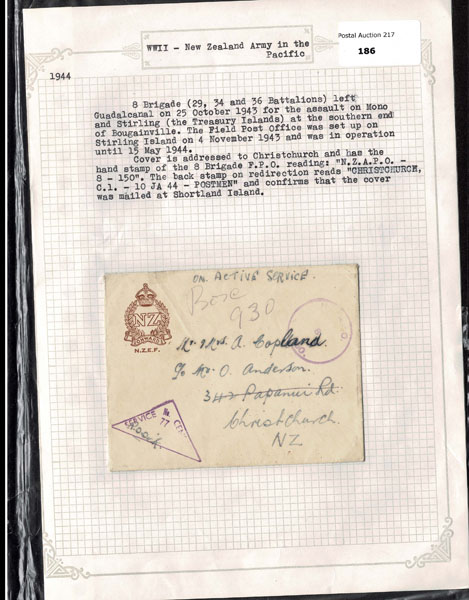 Postal Auction 217
186
WWII - New Zealand Army in the
Pacific
1944
8 Brigade (29, 34 and 36 Battalions) left
Guadalcanal on 25 October 1943 for the assault on Mono
and Stirling (the Treasury Islands) at the southern end
of Bougainville. The Field Post Office was set up on
Stirling Island on 4 November 1943 and was in operation
until 15 May 1944.
Cover is addressed to Christchurch and has the
hand stamp of the 8 Brigade F.P.O. reading: "N.Z.A.P.O. -
8 - 150". The back stamp on redirection reads "CHRISTCHURCH,
C.1. - 10 JA 44 - POSTMEN" and confirms that the cover
was mailed at Shortland Island.
ON ACTIVE SERVICE.
Box
930
NZ
ONWARD
N.Z.E.F.
Mr & Mrs. A. Copland.
c/o Mr. O. Anderson.
342 Papanui Rd.
Christchurch.
NZ
SERVICE
77